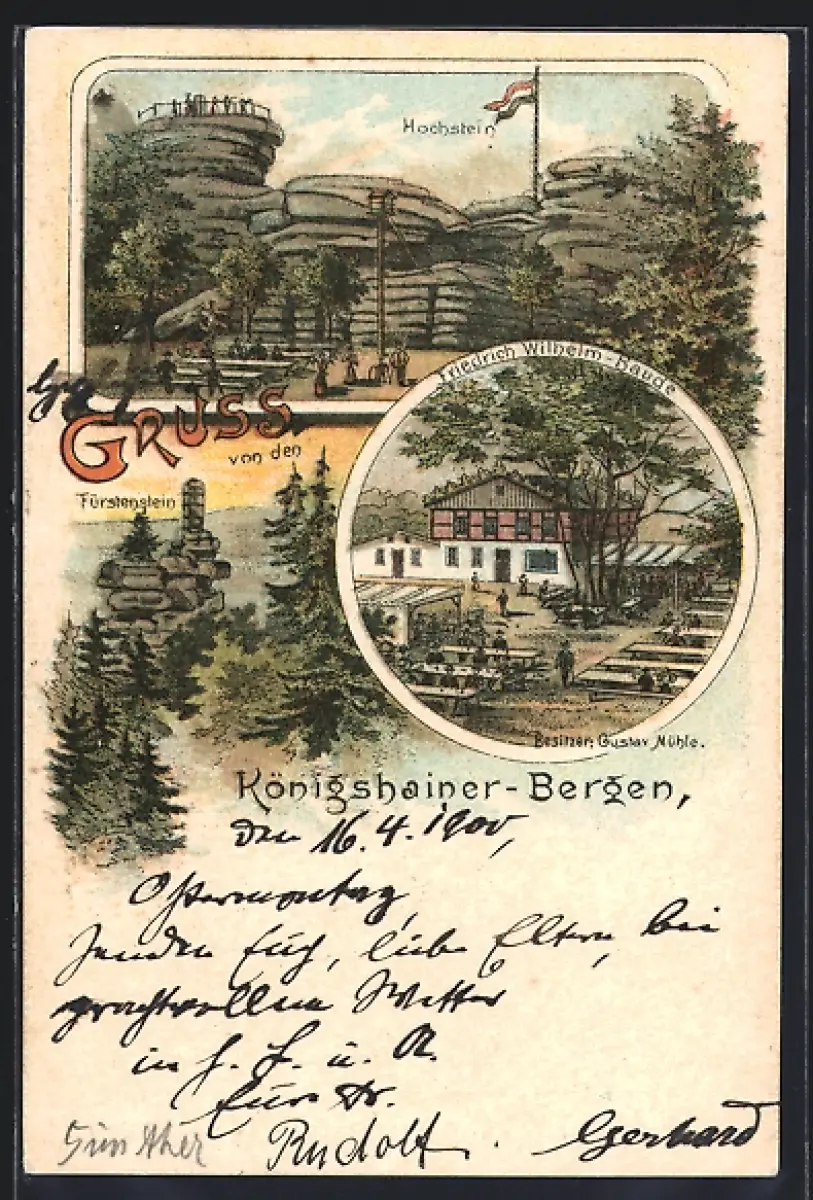 Hochstein
Friedrich Wilhelm-Baude
GRUSS
von den
Fürstenstein
Besitzer: Gustav Mühle.
Königshainer-Bergen,
den 16.4.1900,
Ostermontag,
senden Euch, liebe Eltern, bei
prachtvollem Wetter
in
Eure
Günther Rudolf. Gerhard